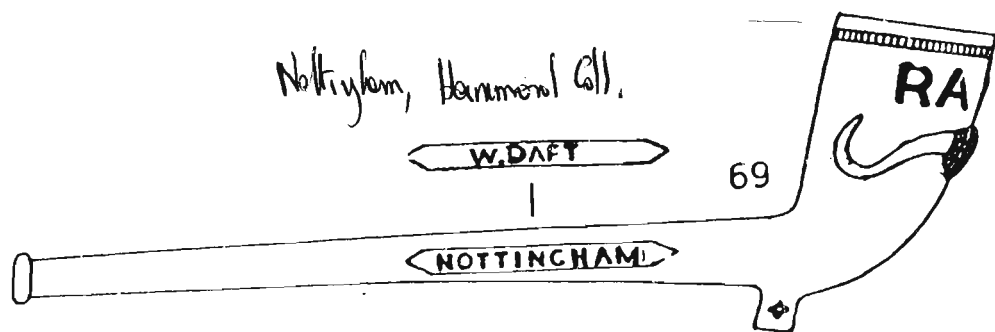 RA
Nottingham, Hammond Coll.
W.DAFT
69
NOTTINGHAM